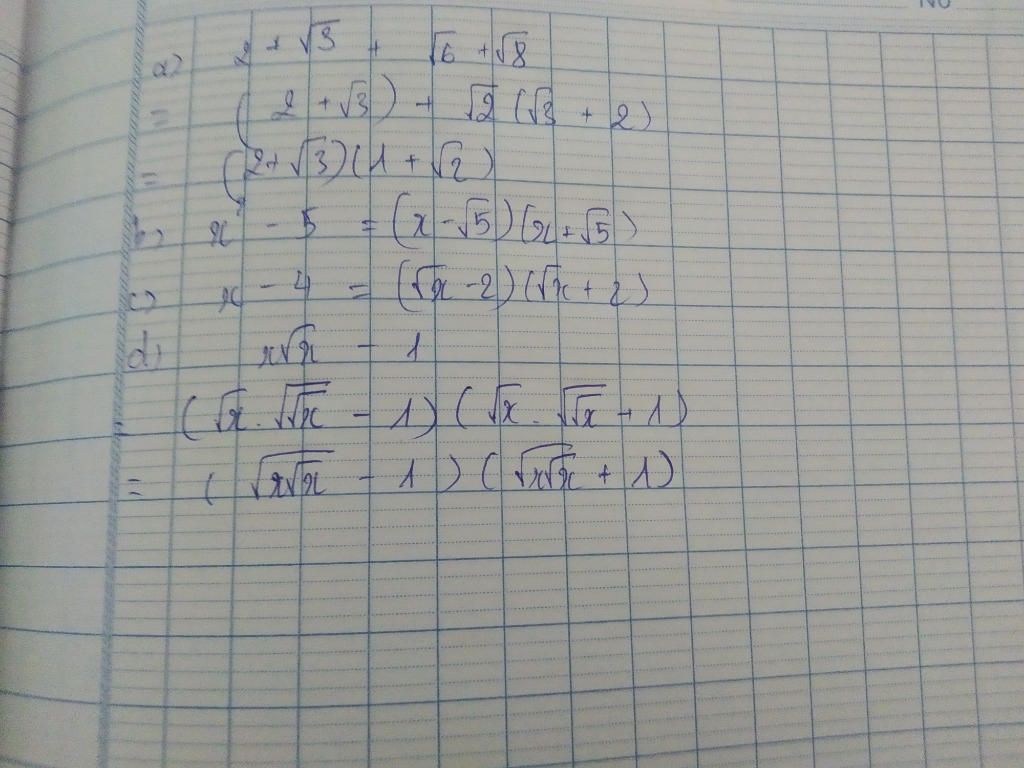 No
a) 2 + √3 + √6 + √8
= (2 + √3) + √2 (√3 + 2)
= (2 + √3)(1 + √2)
b) x² - 5 = (x - √5)(x + √5)
c) x - 4 = (√x - 2)(√x + 2)
d) x√x - 1
= (√x . √√x - 1)(√x . √√x + 1)
= (√(x√x) - 1)(√(x√x) + 1)